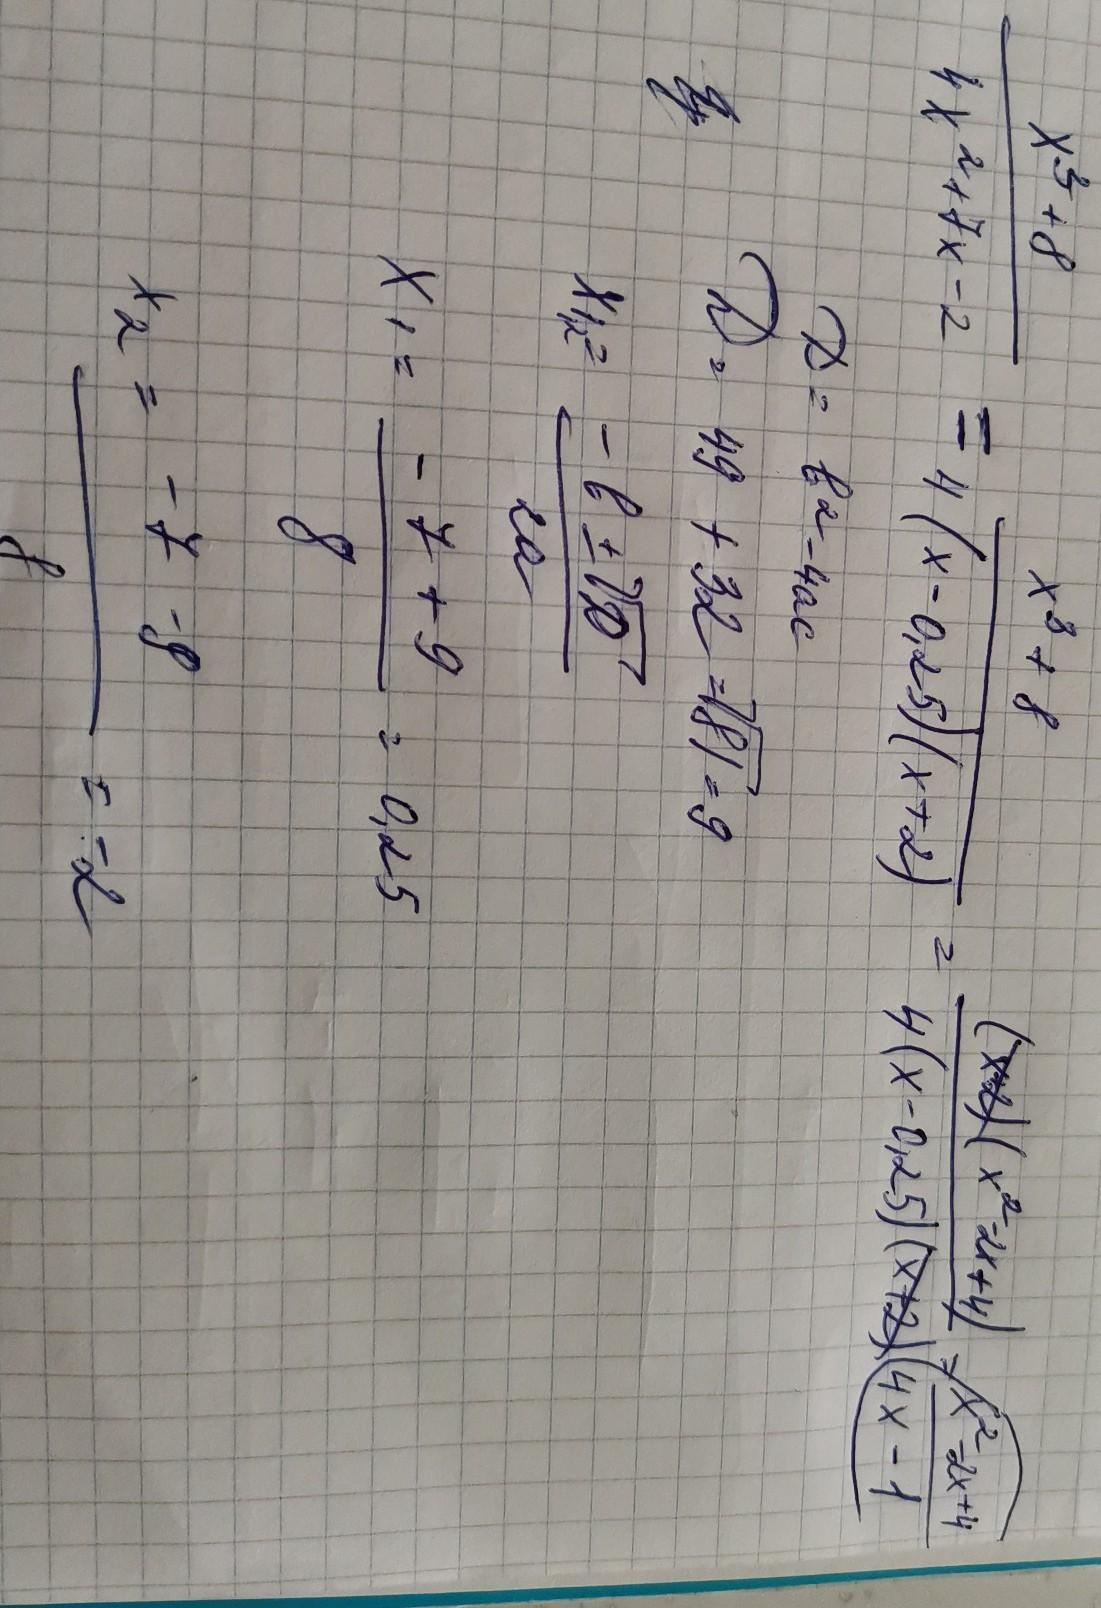 x³+8 / 4x²+7x-2 = x³+8 / 4(x-0,25)(x+2) = (x+2)(x²-2x+4) / 4(x-0,25)(x+2) = x²-2x+4 / 4x-1
D = b²-4ac
D = 49 + 32 = √81 = 9
x₁,₂ = -b ± √D / 2a
x₁ = -7+9 / 8 = 0,25
x₂ = -7-9 / 8 = -2